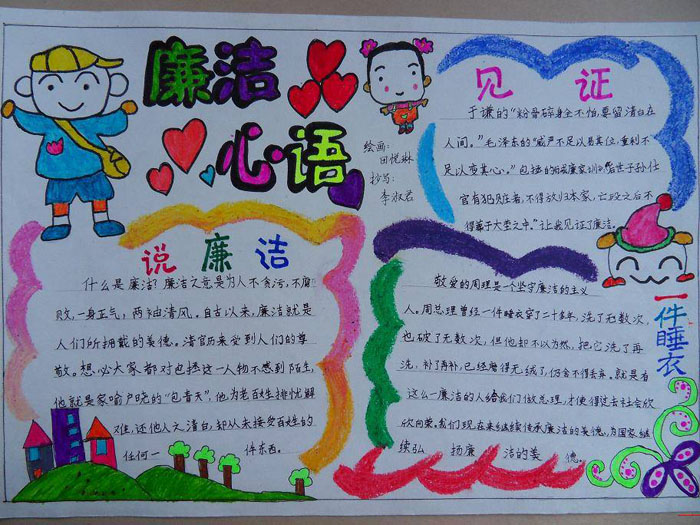 廉洁
心语
绘画:
田悦琳
抄写:
李淑君
见证
于谦的“粉骨碎身全不怕,要留清白在
人间。”毛泽东的“威严不足以易其位,重利不
足以变其心。”包拯的
后世子孙仕
官有犯贓者,不得放归本家,亡殁之后不
得葬于大茔之中。”让我见证了廉洁。
说廉洁
什么是廉洁?廉洁之意是为人不贪污,不腐
败,一身正气,两袖清风。自古以来,廉洁就是
人们所拥戴的美德。清官历来受到人们的尊
敬。想必大家都对包拯这一人物不感到陌生,
他就是家喻户晓的“包青天”,他为老百姓排忧解
难,还他人之清白,却从未接受百姓的
任何一件东西。
一件睡衣
敬爱的周理是一个坚守廉洁的主义
人。周总理曾经一件睡衣穿了二十多年,洗了无数次,
也破了无数次,但他却不以为然,把它洗了再
洗,补了再补,已经磨得无绒了,仍舍不得丢弃。就是有
这么一廉洁的人给我们做总理,才使得过去社会欣
欣向荣。我们现在来继续传承廉洁的美德,为国家继
续弘扬廉洁的美德。